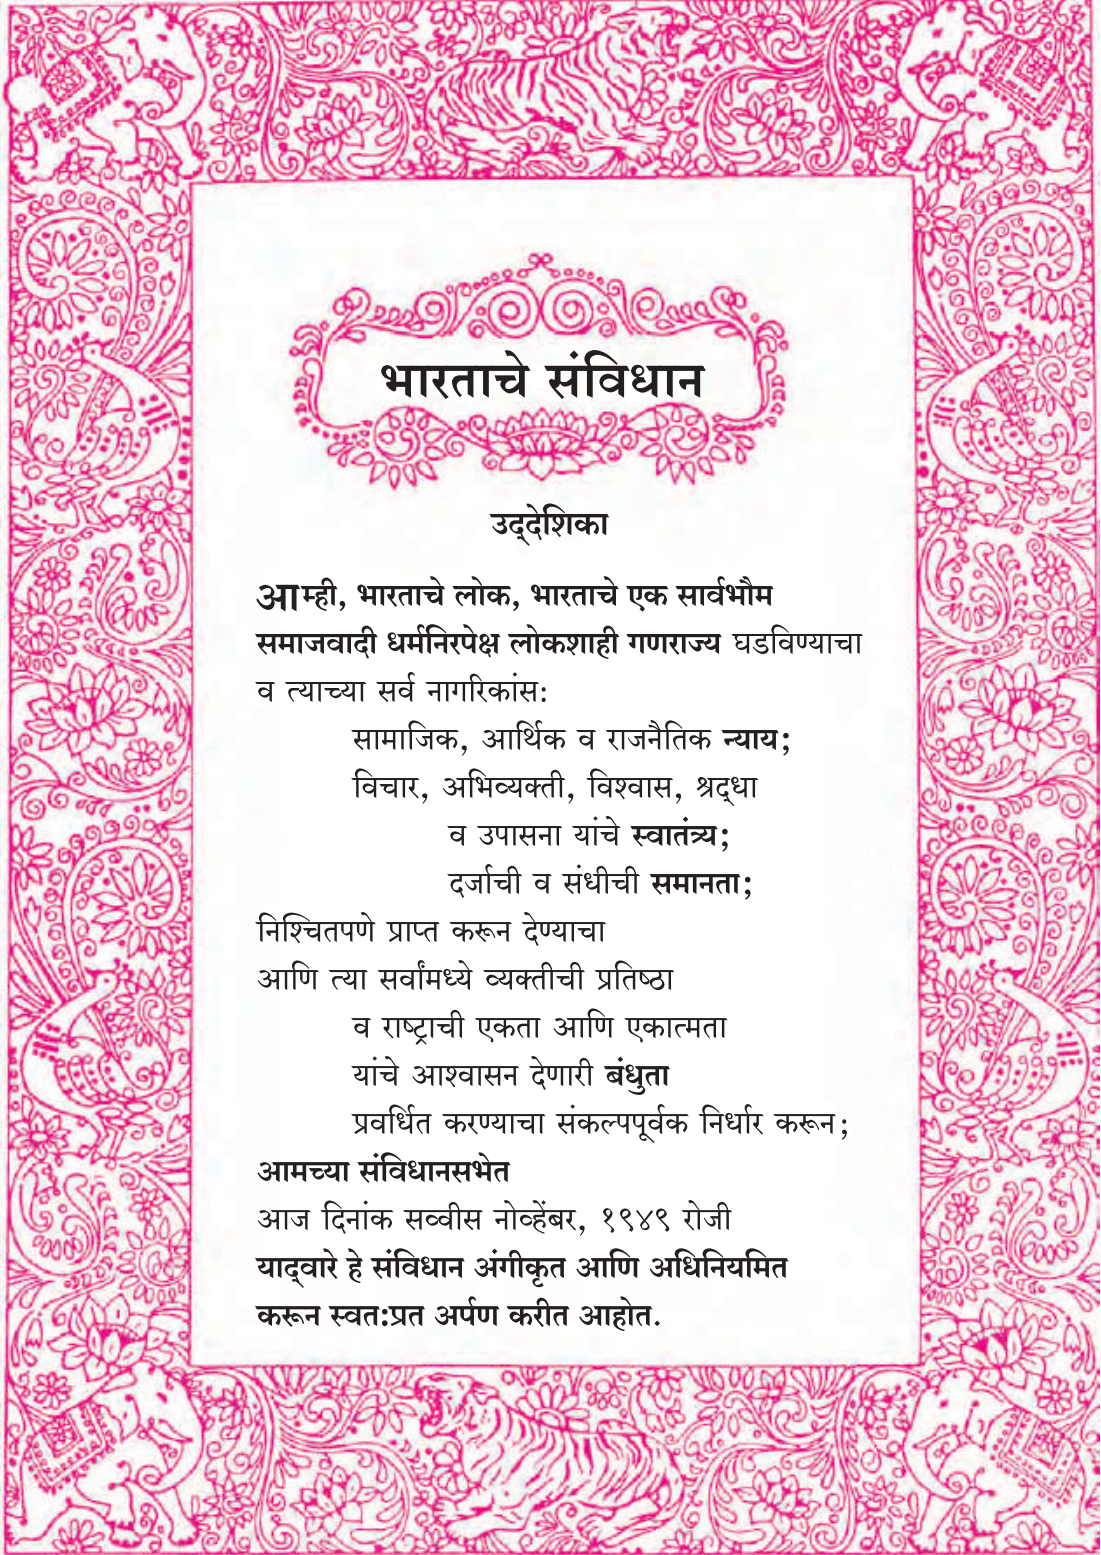 भारताचे संविधान
उद्देशिका
आम्ही, भारताचे लोक, भारताचे एक सार्वभौम
समाजवादी धर्मनिरपेक्ष लोकशाही गणराज्य घडविण्याचा
व त्याच्या सर्व नागरिकांस:
सामाजिक, आर्थिक व राजनैतिक न्याय;
विचार, अभिव्यक्ती, विश्वास, श्रद्धा
व उपासना यांचे स्वातंत्र्य;
दर्जाची व संधीची समानता;
निश्चितपणे प्राप्त करून देण्याचा
आणि त्या सर्वांमध्ये व्यक्तीची प्रतिष्ठा
व राष्ट्राची एकता आणि एकात्मता
यांचे आश्वासन देणारी बंधुता
प्रवर्धित करण्याचा संकल्पपूर्वक निर्धार करून;
आमच्या संविधानसभेत
आज दिनांक सव्वीस नोव्हेंबर, १९४९ रोजी
याद्वारे हे संविधान अंगीकृत आणि अधिनियमित
करून स्वत:प्रत अर्पण करीत आहोत.